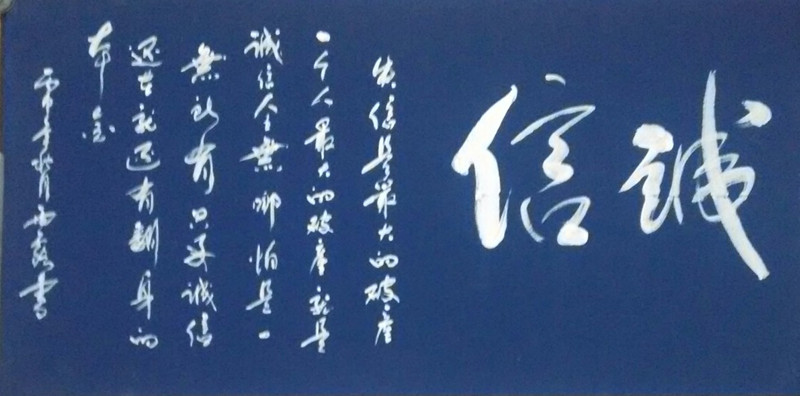 誠信
失信是最大的破產
一个人最大的破產就是
誠信全無哪怕是一
無所有只要誠信
還在就還有翻身的
本金
書